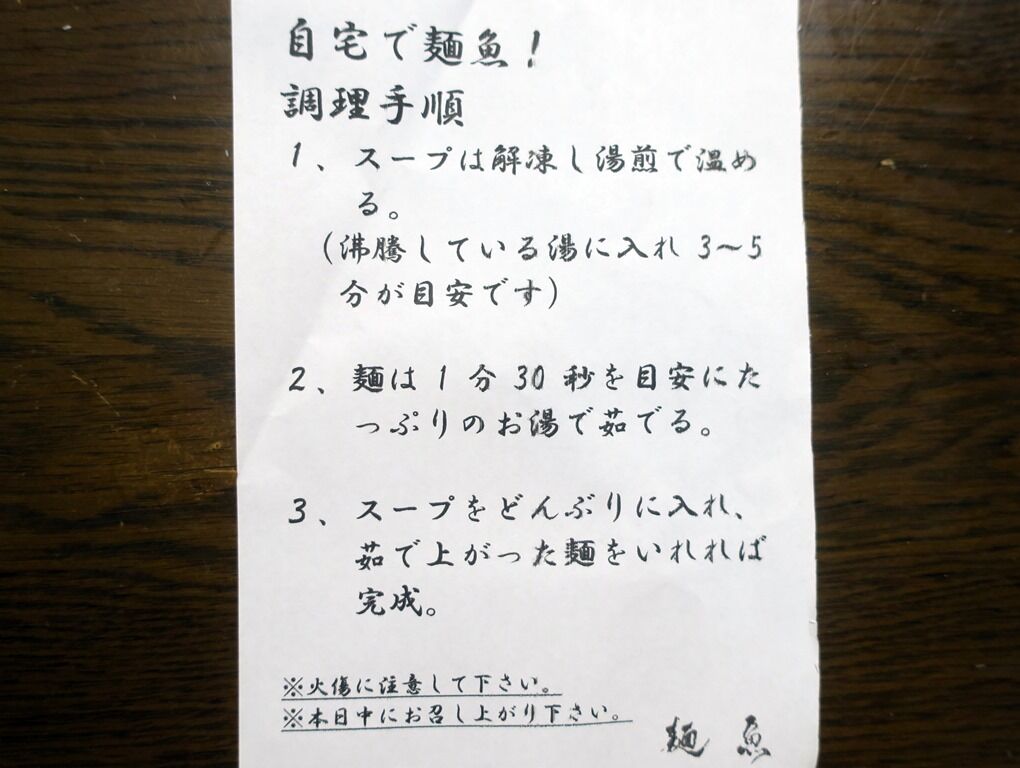 自宅で麺魚！
調理手順
1、スープは解凍し湯煎で温め
る。
（沸騰している湯に入れ 3～5
分が目安です）
2、麺は 1 分 30 秒を目安にた
っぷりのお湯で茹でる。
3、スープをどんぶりに入れ、
茹で上がった麺をいれれば
完成。
※火傷に注意して下さい。
※本日中にお召し上がり下さい。
麺 魚